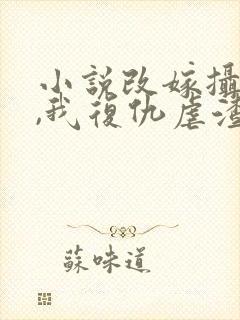 小說改嫁攝
,我復仇虐渣
蘇味道